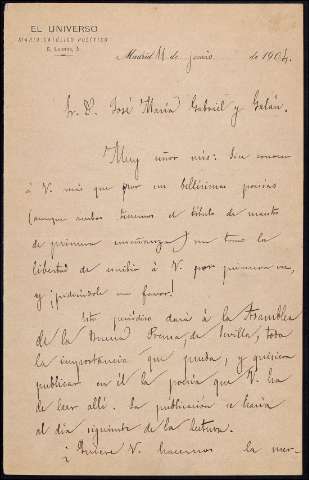 EL UNIVERSO
DIARIO CATÓLICO POLÍTICO
Madrid 11 de junio de 1904.
Sr. D. José María Gabriel y Galán.
Muy señor mío: Sin conocer
á V. más que por sus bellísimas poesías
(aunque ambos tenemos el título de maestro
de primera enseñanza) me tomo la
libertad de escribir á V. por primera vez,
y ¡pidiéndole un favor!
Este periódico dará á la Asamblea
de la Buena Prensa, de Sevilla, toda
la importancia que pueda, y quisiera
publicar en él la poesía que V. ha
de leer allí. La publicación se haría
al día siguiente de la lectura.
¿Quiere V. hacernos la mer-